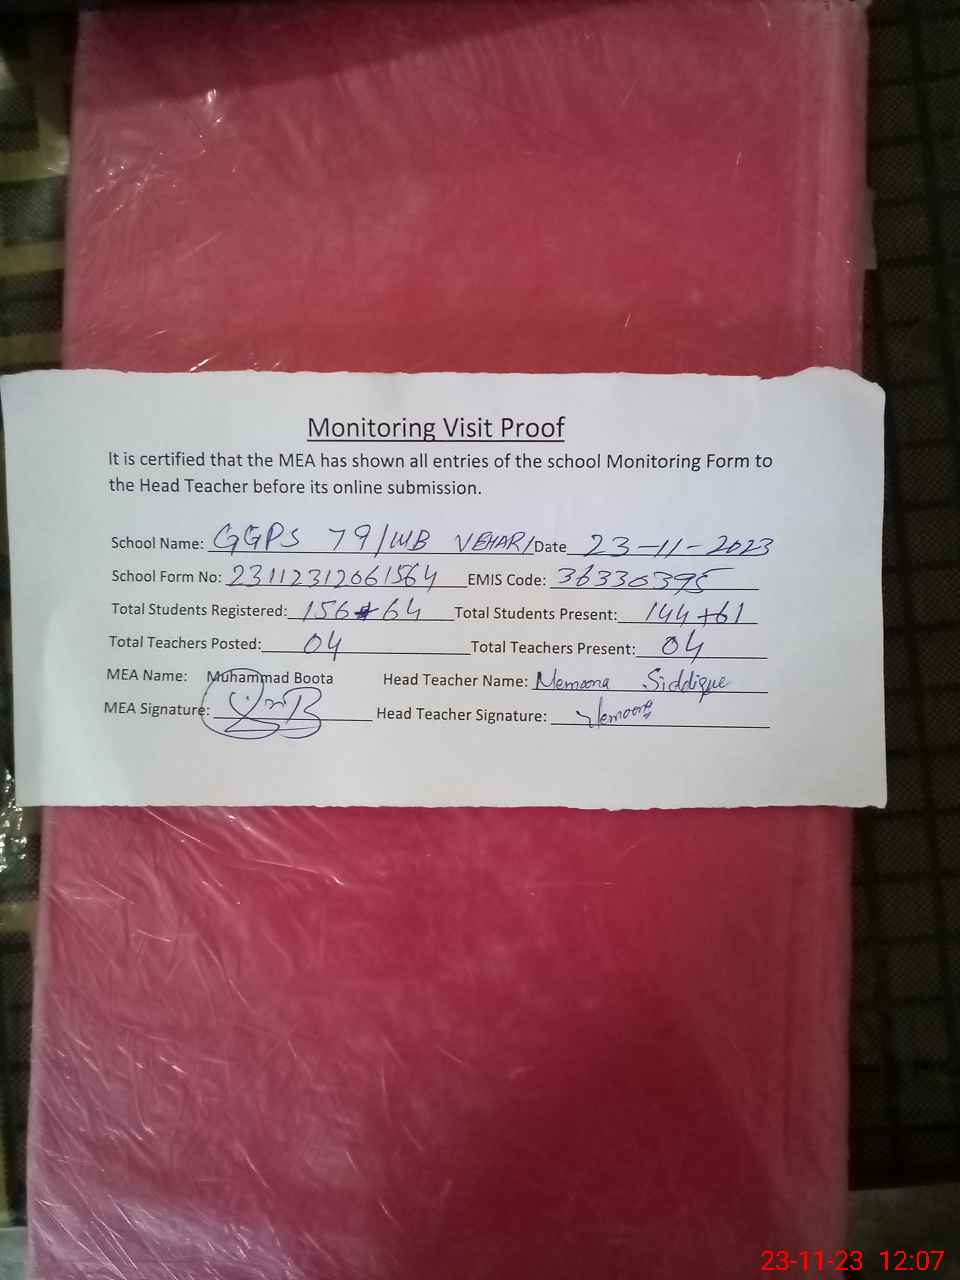 Monitoring Visit Proof
It is certified that the MEA has shown all entries of the school Monitoring Form to
the Head Teacher before its online submission.
School Name: GGPS 79/WB VEHARI Date 23-11-2023
School Form No: 23112312061564 EMIS Code: 36330395
Total Students Registered: 156+64 Total Students Present: 144+61
Total Teachers Posted: 04 Total Teachers Present: 04
MEA Name: Muhammad Boota Head Teacher Name: Memoona Siddique
MEA Signature: Head Teacher Signature: Memoona
23-11-23 12:07